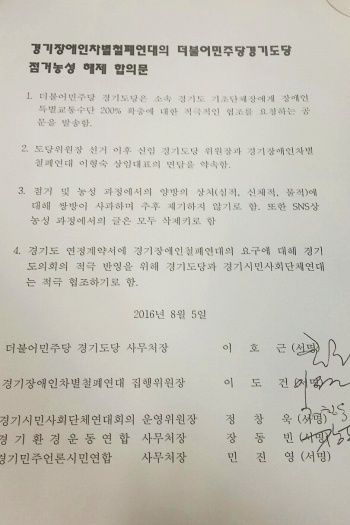 경기장애인차별철폐연대의 더불어민주당경기도당
점거농성 해제 합의문
1. 더불어민주당 경기도당은 소속 경기도 기초단체장에게 장애인
특별교통수단 200% 확충에 대한 적극적인 협조를 요청하는 공
문을 발송함.
2. 도당위원장 선거 이후 신임 경기도당 위원장과 경기장애인차별
철폐연대 이형숙 상임대표의 면담을 약속함.
3. 점거 및 농성 과정에서의 양방의 상처(심적, 신체적, 물적)에
대해 쌍방이 사과하며 추후 제기하지 않기로 함. 또한 SNS상
농성 과정에서의 글은 모두 삭제키로 함
4. 경기도 연정계약서에 경기장애인철폐연대의 요구에 대해 경기
도의회의 적극 반영을 위해 경기도당과 경기시민사회단체연대
는 적극 협조하기로 함.
2016년 8월 5일
더불어민주당 경기도당 사무처장 이 호 근 (서명)
경기장애인차별철폐연대 집행위원장 이 도 건 (서명)
경기시민사회단체연대회의 운영위원장 정 창 욱 (서명)
경기환경운동연합 사무처장 장 동 빈 (서명)
경기민주언론시민연합 사무처장 민 진 영 (서명)